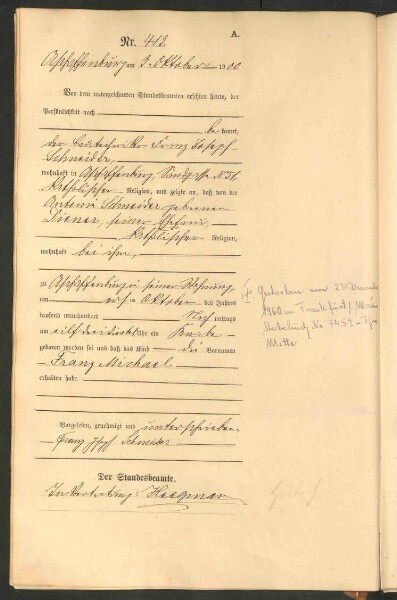 A.
Nr. 413.
Aschaffenburg am 3. Oktober 1900
Vor dem unterzeichneten Standesbeamten erschien heute, der
Persönlichkeit nach
be kannt,
der Bautechniker Franz Joseph
Schneider,
wohnhaft in Aschaffenburg, N. 31,
katholischer Religion, und zeigte an, daß von der
Antonie Schneider geborenen
Diener, seiner Ehefrau,
katholischer Religion,
wohnhaft bei ihm,
zu Aschaffenburg in seiner Wohnung
am Oktober des Jahres
tausend neunhundert Nach mittags
um Uhr ein Knabe
geboren worden sei und daß das Kind die Vornamen
Franz Michael
erhalten habe.
Vorgelesen, genehmigt und unterschrieben
Franz Joseph Schneider
Der Standesbeamte.
In Vertretung: Heegmar
Gestorben am 23. Dezember
1960 in Frankfurt/Main
No 7453
Mitte